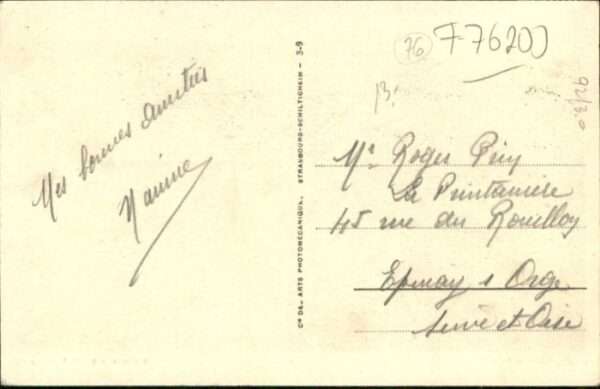 Mes bonnes amitiés
Cie DES ARTS PHOTOMÉCANIQUES, STRASBOURG-SCHILTIGHEIM — 3-9
76
F76200
Mr Roger
La Printanière
45 rue du Rouillon
Epinay s Orge
Seine et Oise